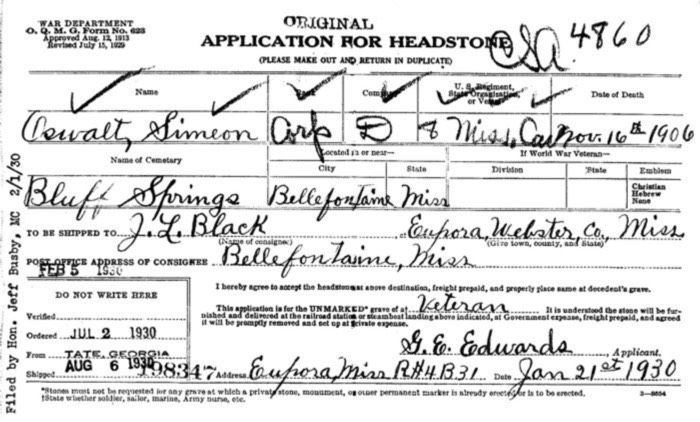 WAR DEPARTMENT
O. Q. M. G. Form No. 623
Approved Aug. 12, 1913
Revised July 15, 1929
ORIGINAL
APPLICATION FOR HEADSTONE
(PLEASE MAKE OUT AND RETURN IN DUPLICATE)
CSA. 4860
Name Company U. S. Regiment, State Organization, or Vessel Date of Death
Oswalt, Simeon Corp D 8 Miss. Cav Nov. 16th 1906
Name of Cemetery Located in or near— If World War Veteran—
City State Division State Emblem
Bluff Springs Bellefontaine Miss
Christian
Hebrew
None
TO BE SHIPPED TO J. L. Black Eupora, Webster, Co, Miss
(Name of consignee) (Give town, county, and State)
POST OFFICE ADDRESS OF CONSIGNEE Bellefontaine, Miss
FEB 5 1930
I hereby agree to accept the headstone at above destination, freight prepaid, and properly place same at decedent's grave.
DO NOT WRITE HERE
This application is for the UNMARKED* grave of a† Veteran It is understood the stone will be fur-
nished and delivered at the railroad station or steamboat landing above indicated, at Government expense, freight prepaid, and agreed
it will be promptly removed and set up at private expense.
Verified
Ordered JUL 2 1930
From TATE, GEORGIA
G. E. Edwards Applicant.
Shipped AUG 6 1930
Address Eupora, Miss R#4 B31 Date Jan 21st 1930
*Stones must not be requested for any grave at which a private stone, monument, or other permanent marker is already erected or is to be erected.
†State whether soldier, sailor, marine, Army nurse, etc.
Filed by Hon. Jeff Busby, MC 2/1/30